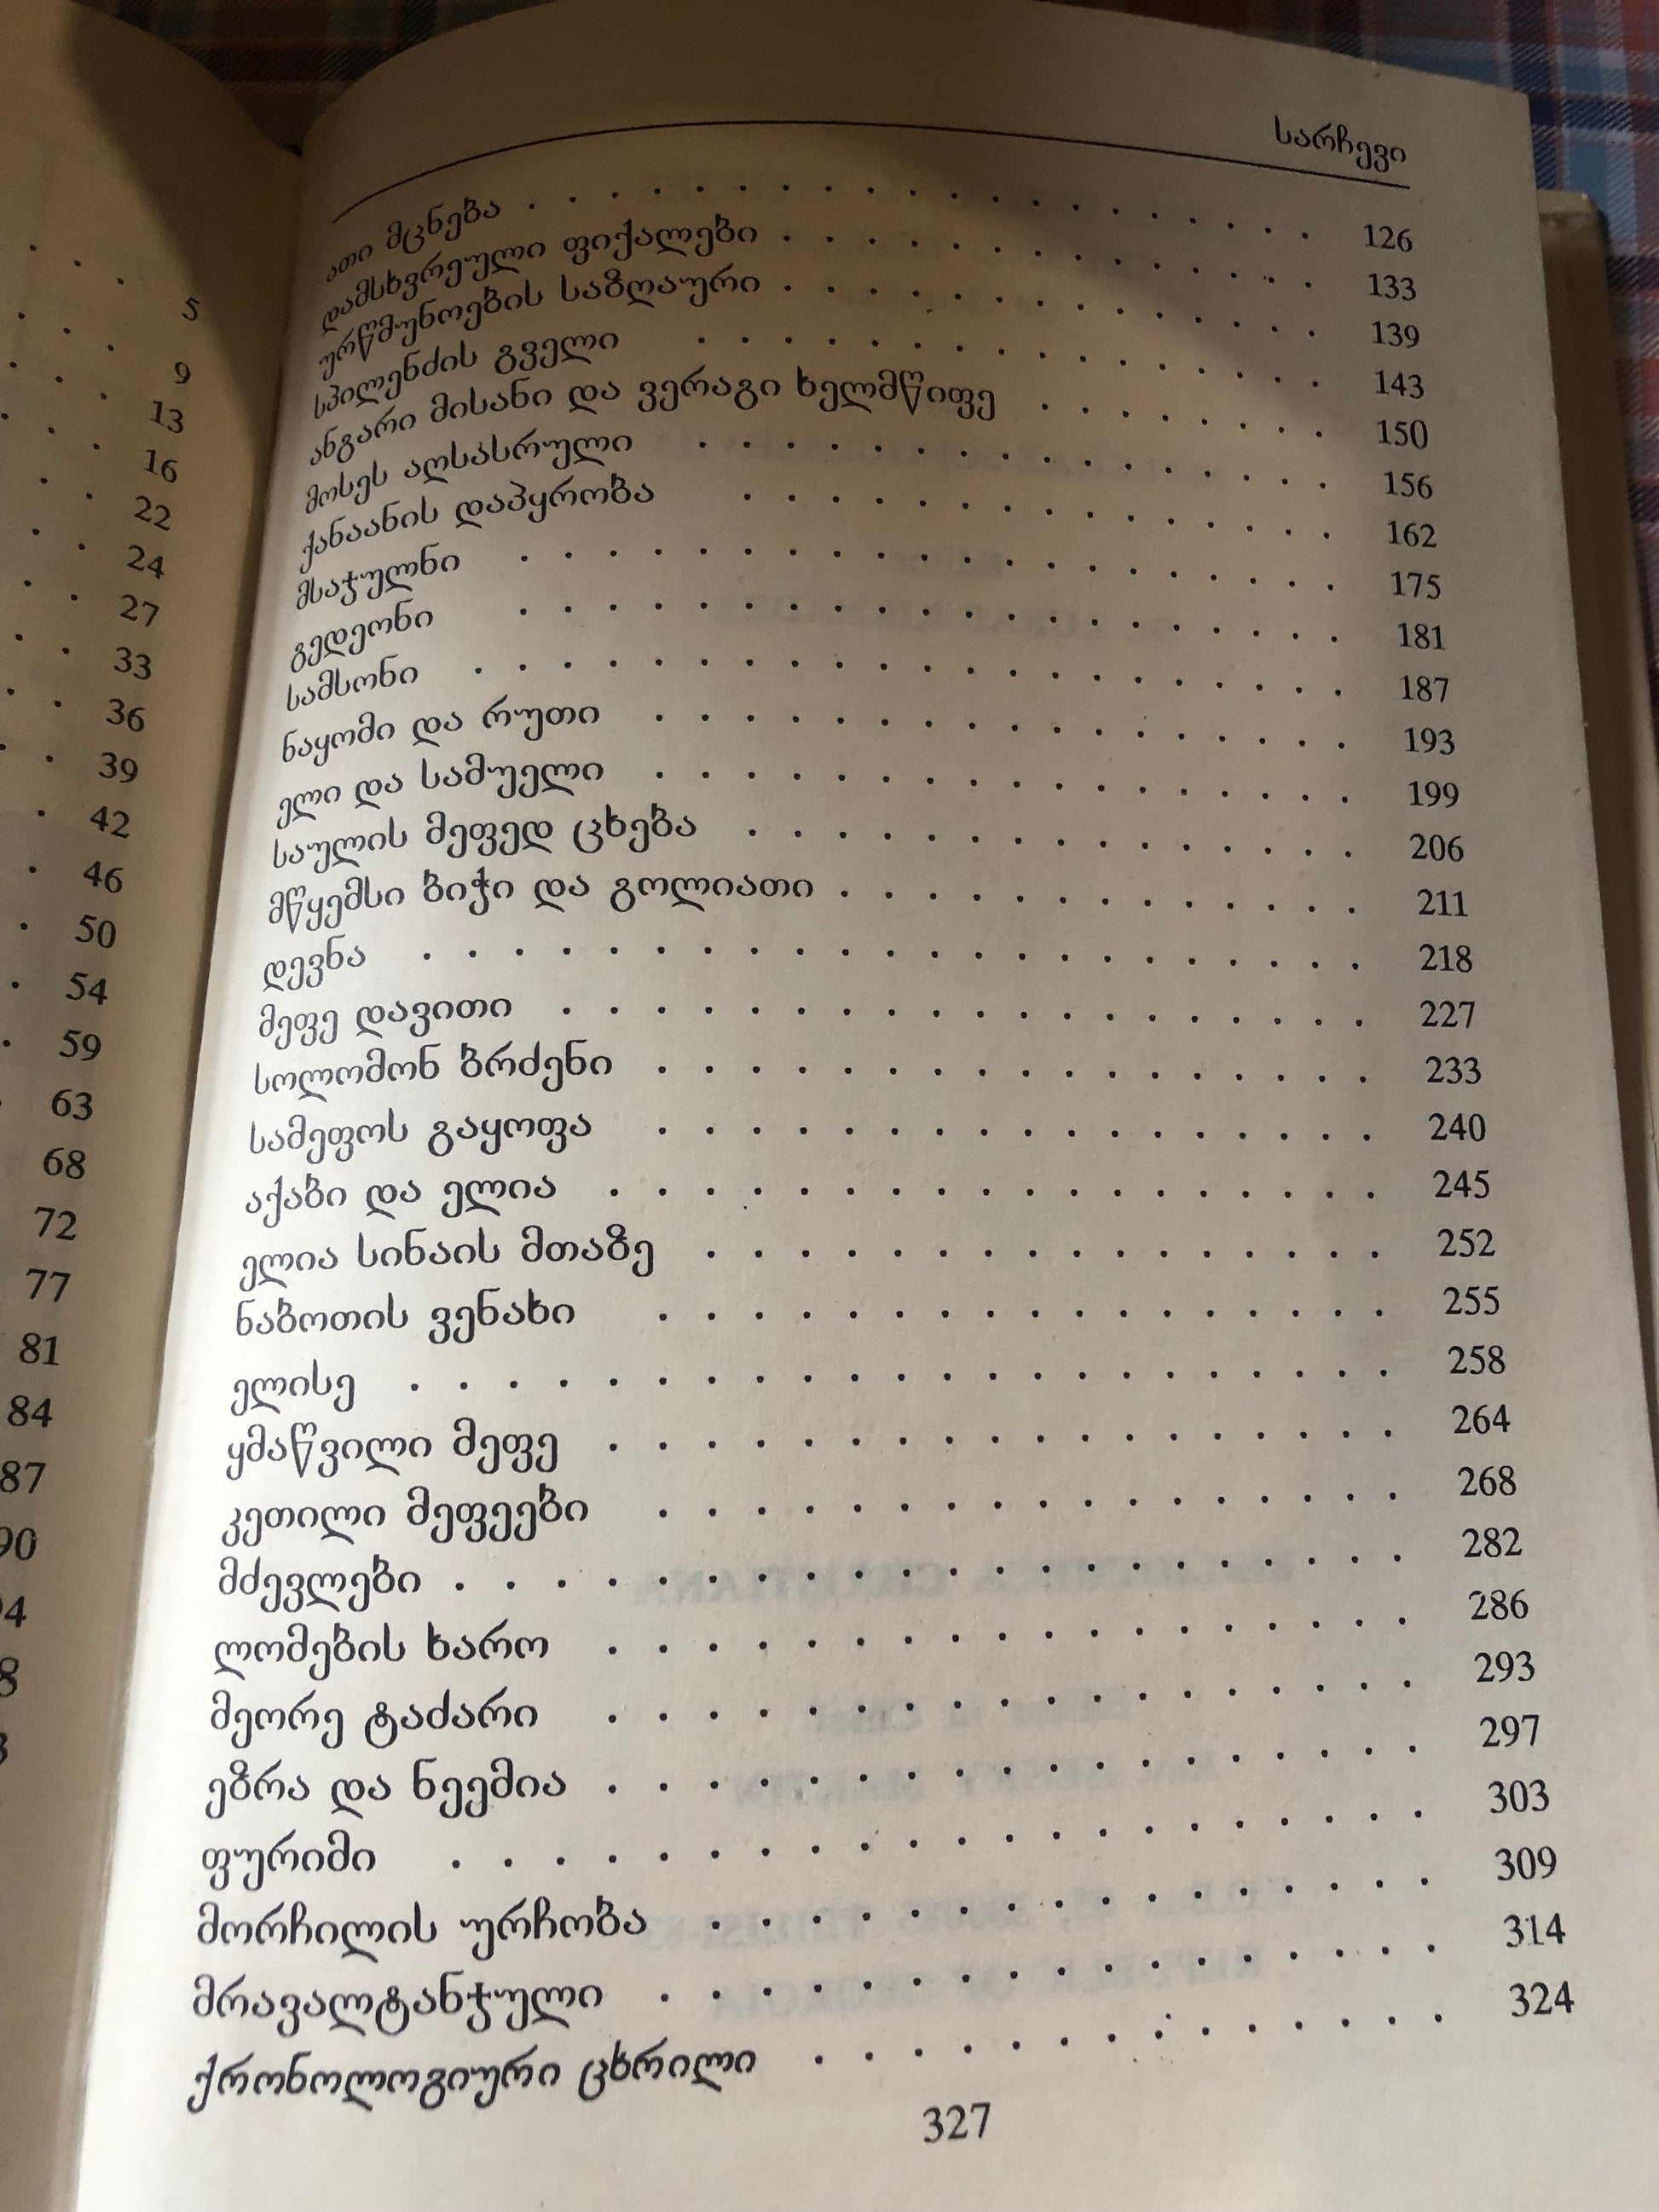 5
9
13
16
22
24
27
33
36
39
42
46
50
54
59
63
68
72
77
81
84
87
სარჩევი
ათი მცნება . . . . . . . . . . . . . . . . . . 126
დამსხვრეული ფიქალები . . . . . . . . . . . . . 133
ურწმუნოების საზღაური . . . . . . . . . . . . . 139
სპილენძის გველი . . . . . . . . . . . . . . . 143
ანგარი მისანი და ვერაგი ხელმწიფე . . . . . . . 150
მოსეს აღსასრული . . . . . . . . . . . . . . . 156
ქანაანის დაპყრობა . . . . . . . . . . . . . . 162
მსაჯულნი . . . . . . . . . . . . . . . . . . 175
გედეონი . . . . . . . . . . . . . . . . . . 181
სამსონი . . . . . . . . . . . . . . . . . . . 187
ნაყომი და რუთი . . . . . . . . . . . . . . . . 193
ელი და სამუელი . . . . . . . . . . . . . . . . 199
საულის მეფედ ცხება . . . . . . . . . . . . . . 206
მწყემსი ბიჭი და გოლიათი . . . . . . . . . . . . 211
დევნა . . . . . . . . . . . . . . . . . . . . 218
მეფე დავითი . . . . . . . . . . . . . . . . . 227
სოლომონ ბრძენი . . . . . . . . . . . . . . . . 233
სამეფოს გაყოფა . . . . . . . . . . . . . . . . 240
აქაბი და ელია . . . . . . . . . . . . . . . . . 245
ელია სინაის მთაზე . . . . . . . . . . . . . . . 252
ნაბოთის ვენახი . . . . . . . . . . . . . . . . 255
ელისე . . . . . . . . . . . . . . . . . . . . 258
ყმაწვილი მეფე . . . . . . . . . . . . . . . . . 264
კეთილი მეფეები . . . . . . . . . . . . . . . . 268
მძევლები . . . . . . . . . . . . . . . . . . . 282
ლომების ხარო . . . . . . . . . . . . . . . . . 286
მეორე ტაძარი . . . . . . . . . . . . . . . . . 293
ეზრა და ნეემია . . . . . . . . . . . . . . . . . 297
ფურიმი . . . . . . . . . . . . . . . . . . . . 303
მორჩილის ურჩობა . . . . . . . . . . . . . . . 309
მრავალტანჯული . . . . . . . . . . . . . . . . 314
ქრონოლოგიური ცხრილი . . . . . . . . . . . . . 324
327